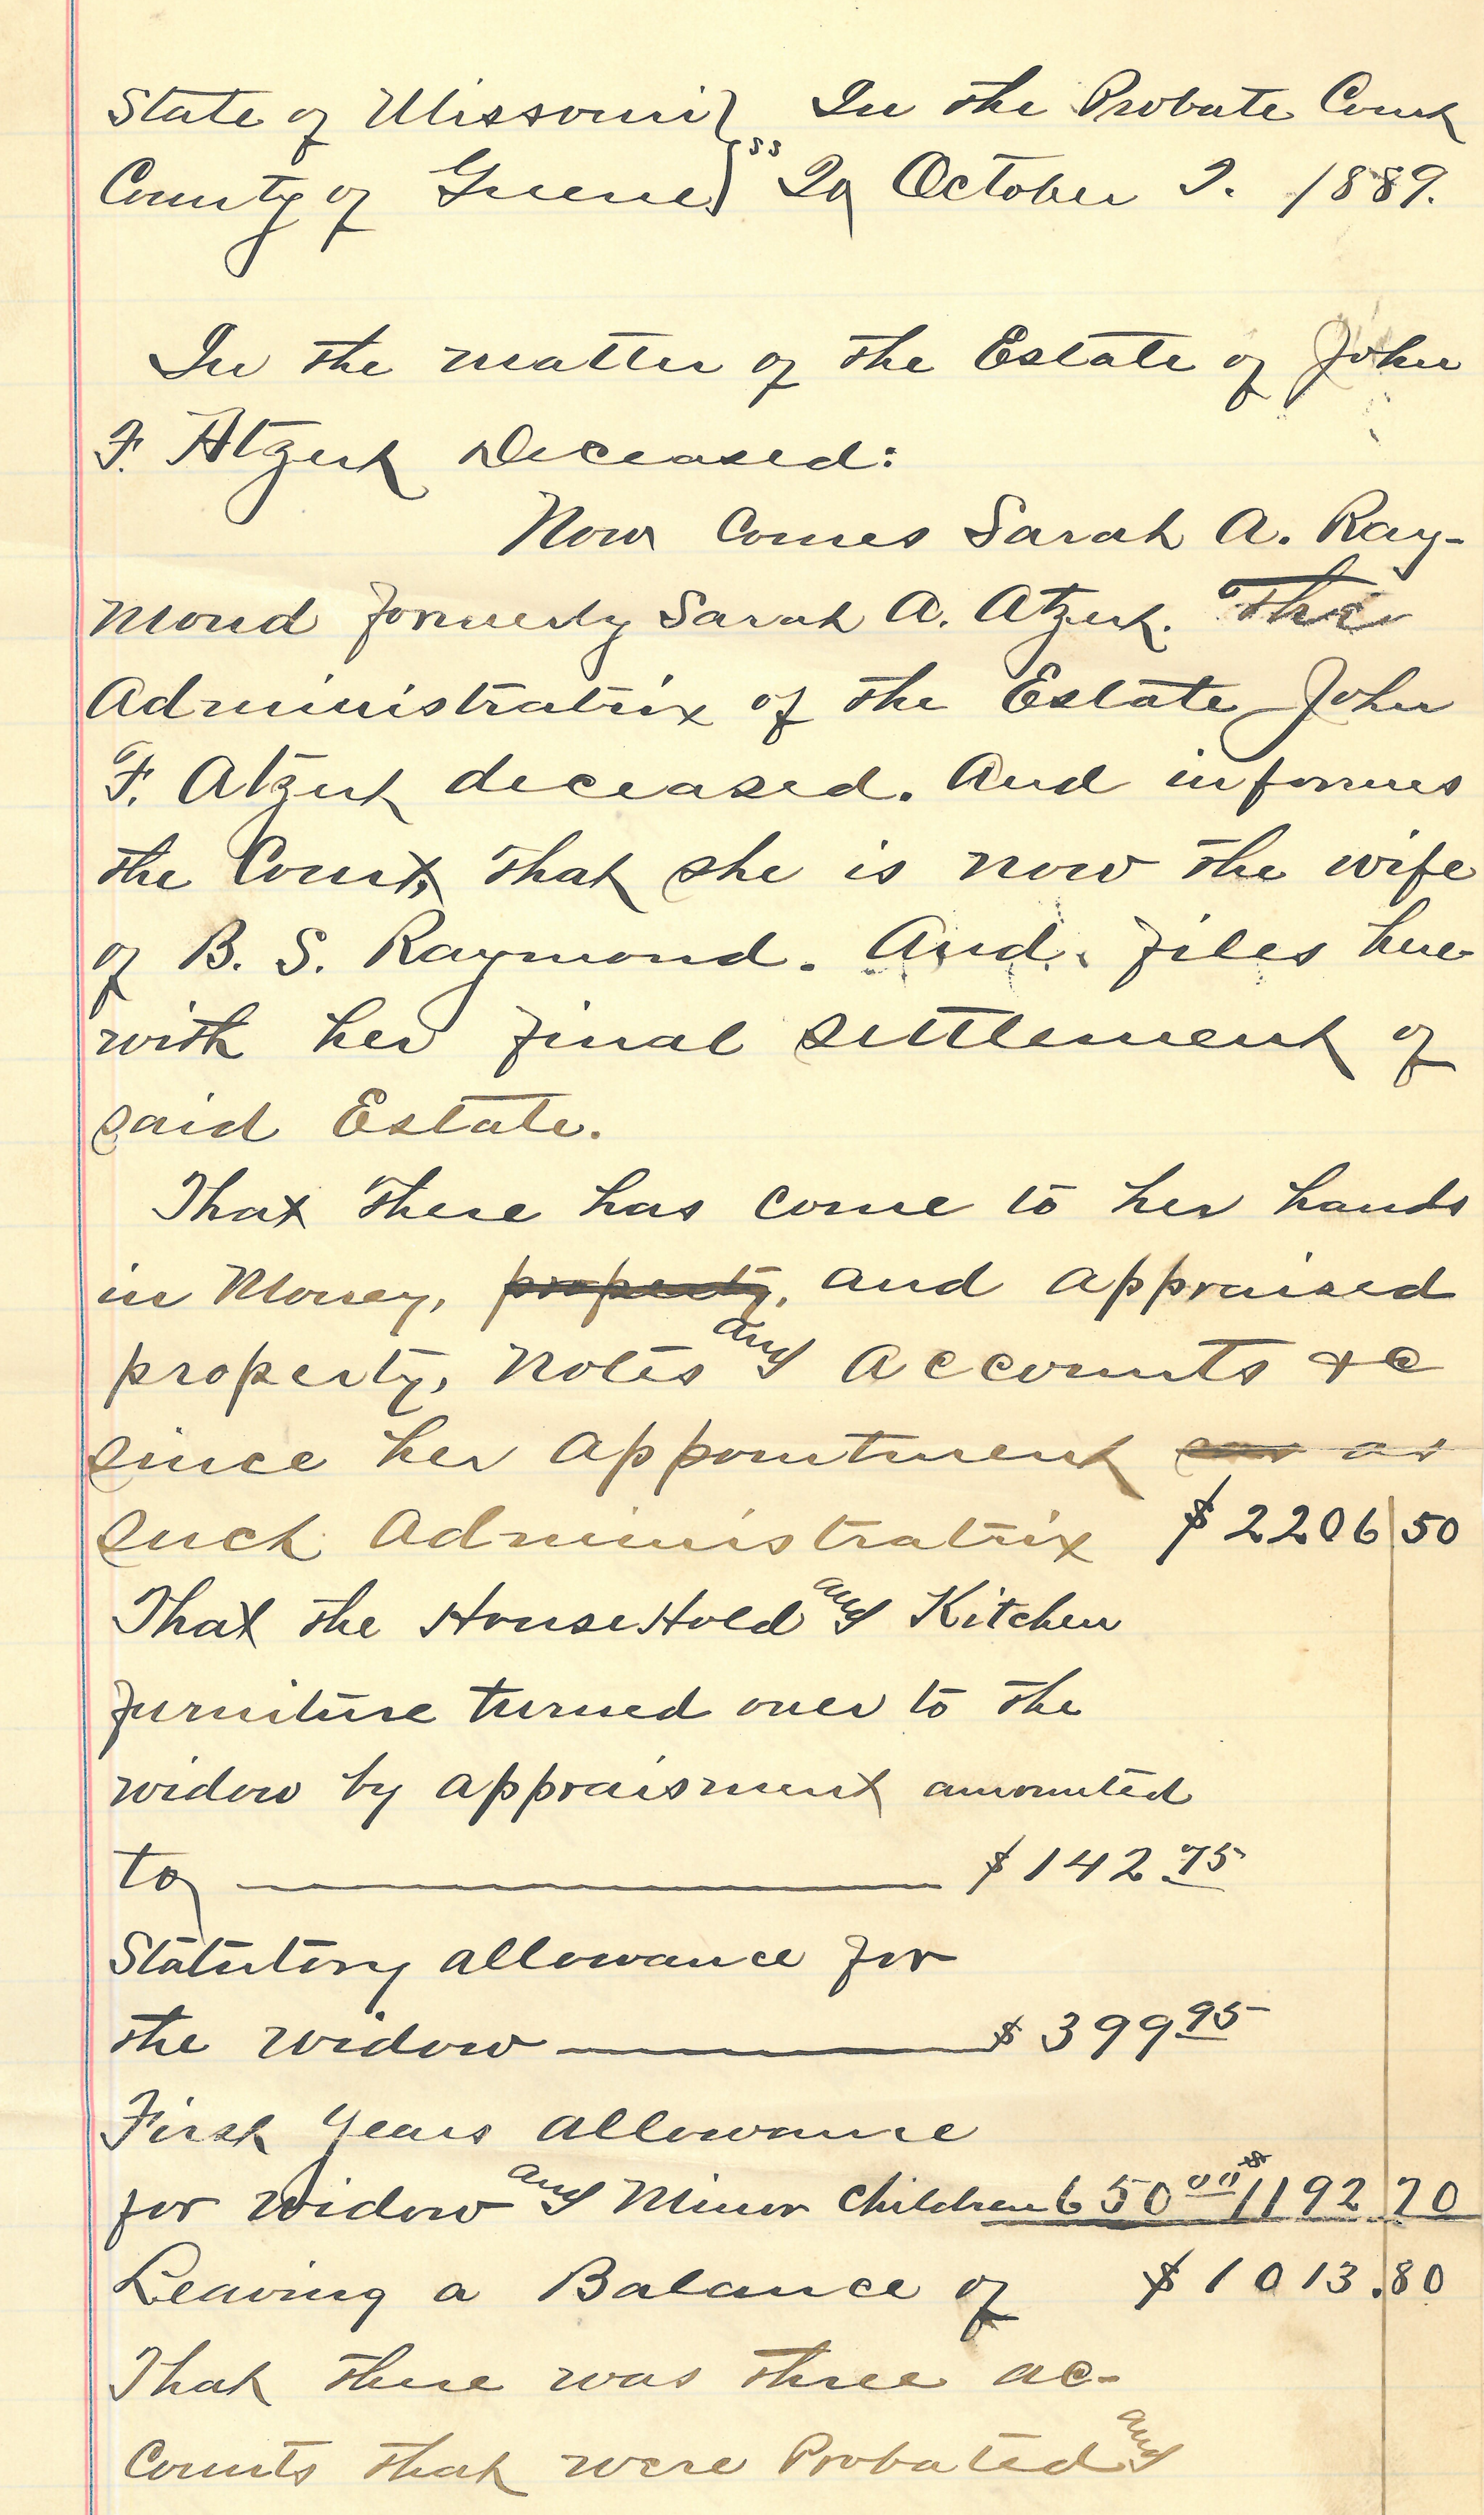 State of Missouri } In the Probate Court
County of Greene } ss To October T. 1889.
In the matter of the Estate of John
F. Atzert Deceased:
Now Comes Sarah A. Ray-
mond formerly Sarah A. Atzert. The
Administratrix of the Estate John
F. Atzert deceased. And informes
the Court, that she is now the wife
of B. S. Raymond. And files here
with her final settlement of
said Estate.
That there has come to her hands
in Money, property, and appraised
property, Notes and Accounts &c
since her appointment as
such Administratrix $2206 50
That the HouseHold and Kitchen
furniture turned over to the
widow by appraisment amounted
to $142.75
Statutory allowance for
the widow $399.95
First Years Allowance
for widow and Minor Children 650.00 $1192 70
Leaving a Balance of $1013.80
That there was three ac-
counts that were Probated and